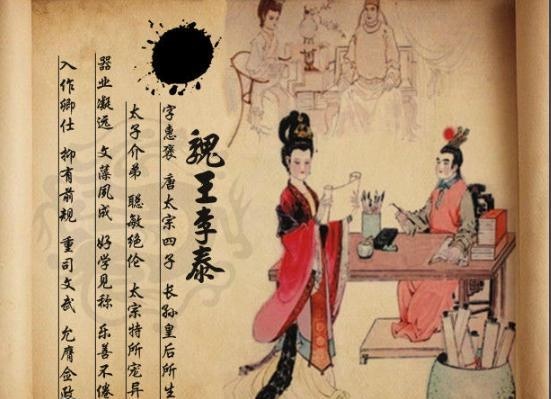 魏王李泰
字惠褒 唐太宗四子 长孙皇后所生
太子介弟 聪敏绝伦 太宗特所宠异
器业凝远 文藻夙成 好学见称 乐善不倦
入作卿仕 抑有前规 重司文武 允膺佥政